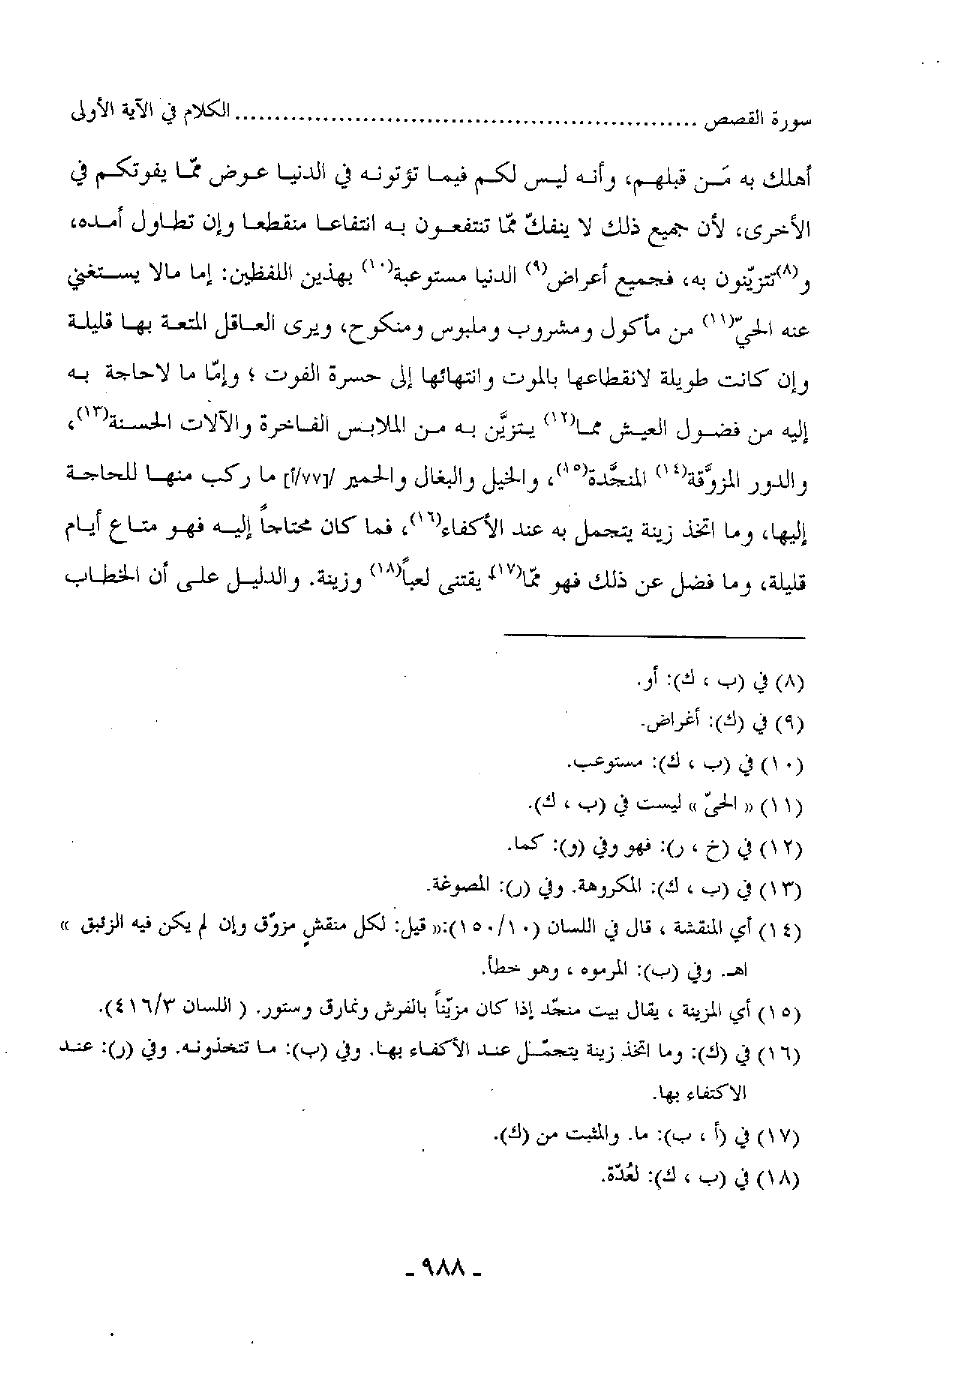 سورة القصص .......................................................... الكلام في الآية الأولى
أهلك به مَن قبلهم، وأنه ليس لكم فيما تؤتونه في الدنيا عوض ممّا يفوتكم في
الأخرى، لأن جميع ذلك لا ينفكّ ممّا تنتفعون به انتفاعا منقطعا وإن تطاول أمده،
و(٨)تتزيّنون به، فجميع أعراض(٩) الدنيا مستوعبة(١٠) بهذين اللفظين: إما مالا يستغني
عنه الحيّ(١١) من مأكول ومشروب وملبوس ومنكوح، ويرى العاقل المتعة بها قليلة
وإن كانت طويلة لانقطاعها بالموت وانتهائها إلى حسرة الفوت ؛ وإمّا ما لاحاجة به
إليه من فضول العيش مما(١٢) يتزيَّن به من الملابس الفاخرة والآلات الحسنة(١٣)،
والدور المزوَّقة(١٤) المنجَّدة(١٥)، والخيل والبغال والحمير /[٧٧/أ] ما ركب منها للحاجة
إليها، وما اتخذ زينة يتجمل به عند الأكفاء(١٦)، فما كان محتاجاً إليه فهو متاع أيام
قليلة، وما فضل عن ذلك فهو ممّا(١٧) يقتنى لعباً(١٨) وزينة. والدليل على أن الخطاب
(٨) في (ب ، ك): أو.
(٩) في (ك): أغراض.
(١٠) في (ب ، ك): مستوعب.
(١١) « الحيّ » ليست في (ب ، ك).
(١٢) في (خ ، ر): فهو وفي (و): كما.
(١٣) في (ب ، ك): المكروهة. وفي (ر): المصوغة.
(١٤) أي المنقشة ، قال في اللسان (١٥٠/١٠):« قيل: لكل منقشٍ مزوّق وإن لم يكن فيه الزئبق »
اهـ. وفي (ب): المرموه ، وهو خطأ.
(١٥) أي المزينة ، يقال بيت منجّد إذا كان مزيّناً بالفرش ونمارق وستور. ( اللسان ٤١٦/٣).
(١٦) في (ك): وما اتخذ زينة يتجمّل عند الأكفاء بها. وفي (ب): ما تتخذونه. وفي (ر): عند
الاكتفاء بها.
(١٧) في (أ ، ب): ما. والمثبت من (ك).
(١٨) في (ب ، ك): لعُدّة.
ـ ٩٨٨ ـ